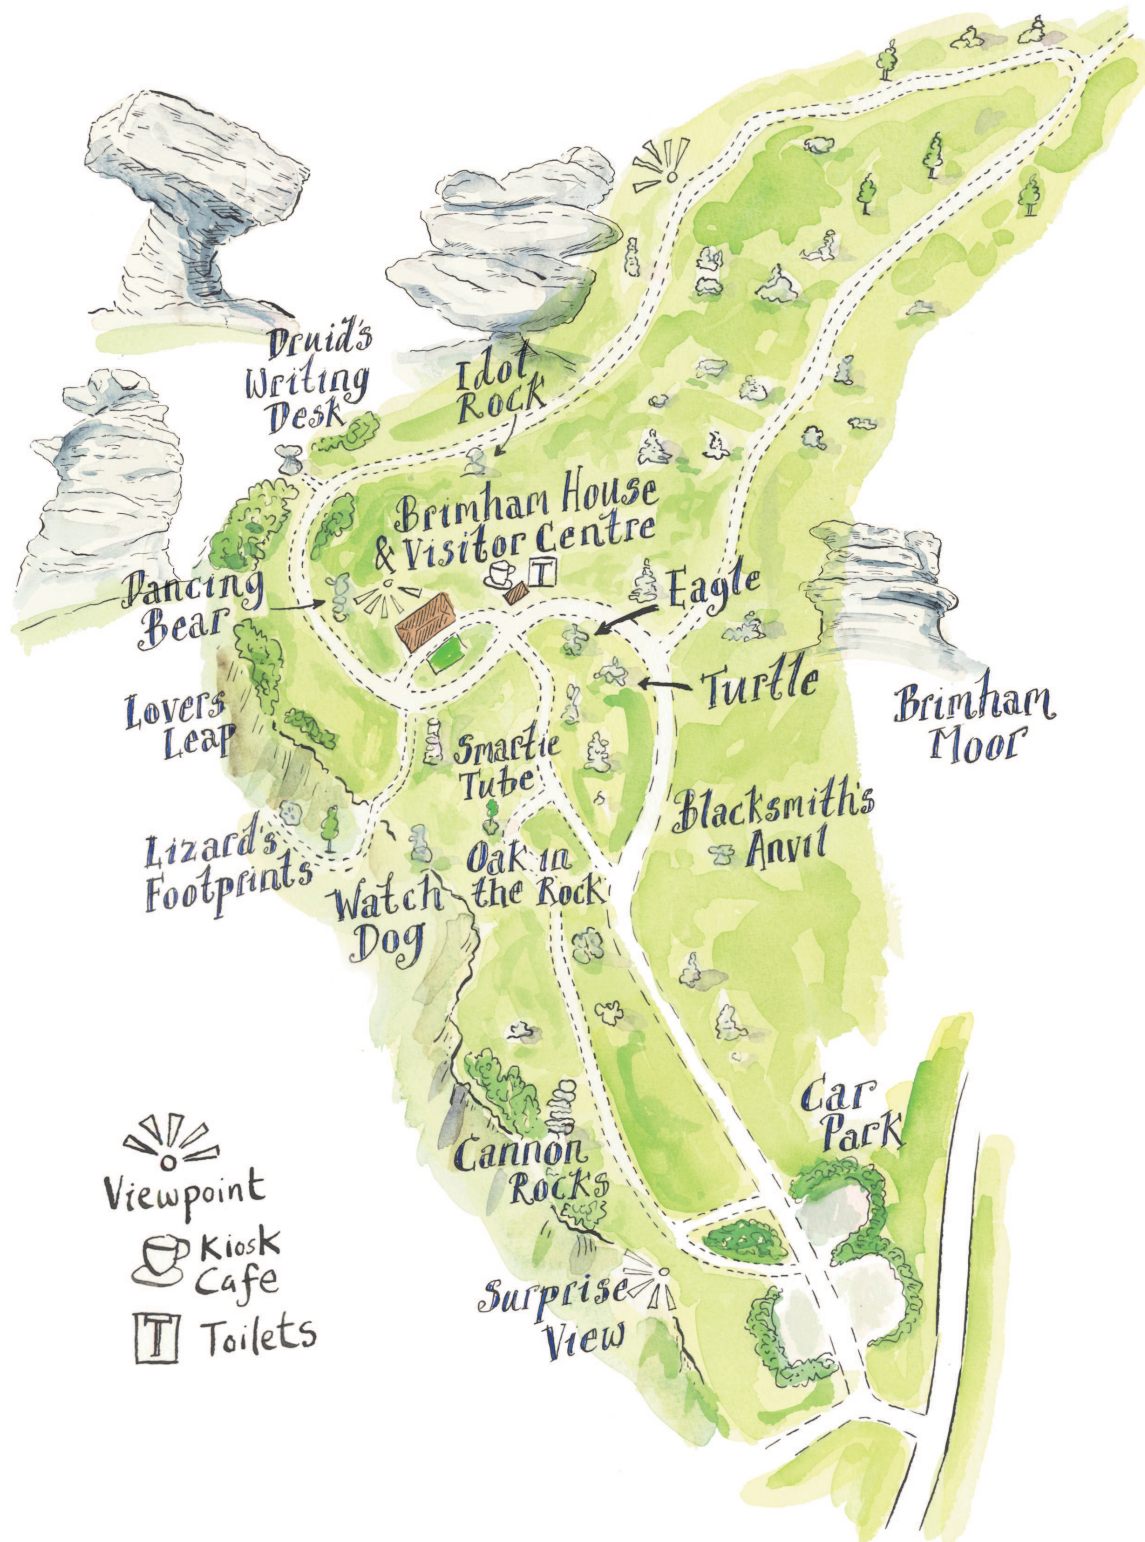 Druid's
Writing
Desk
Idol
Rock
Brimham House
& Visitor Centre
T
Dancing
Bear
Eagle
Turtle
Lovers
Leap
Brimham
Moor
Smartie
Tube
Blacksmith's
Anvil
Lizard's
Footprints
Oak in
the Rock
Watch
Dog
Car
Park
Cannon
Rocks
Surprise
View
Viewpoint
Kiosk
Cafe
T Toilets